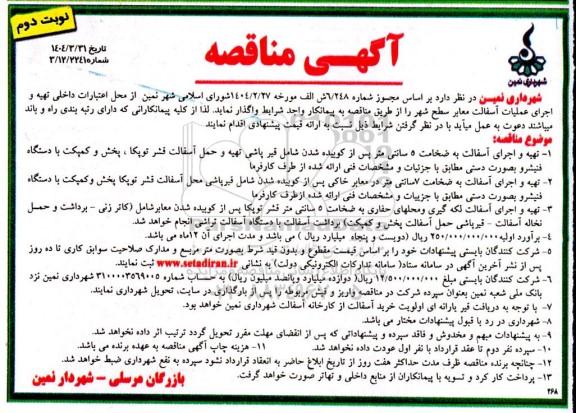 نوبت دوم
آگهی مناقصه
تاریخ ۱۴۰۴/۳/۳۱
شماره ۳/۱۲/۲۲۴۱
شهرداری نمین
شهرداری نمین در نظر دارد بر اساس مجوز شماره ۶/۲۴۸/ش الف مورخه ۱۴۰۴/۲/۲۷ شورای اسلامی شهر نمین از محل اعتبارات داخلی تهیه و
اجرای عملیات آسفالت معابر سطح شهر را از طریق مناقصه به پیمانکار واجد شرایط واگذار نماید. لذا از کلیه پیمانکارانی که دارای رتبه بندی راه و باند
میباشند دعوت به عمل میآید با در نظر گرفتن شرایط ذیل نسبت به ارائه قیمت پیشنهادی اقدام نمایند
موضوع مناقصه:
۱- تهیه و اجرای آسفالت به ضخامت ۵ سانتی متر پس از کوبیده شدن شامل قیر پاشی تهیه و حمل آسفالت قشر توپکا ، پخش و کمپکت با دستگاه
فنیشر و بصورت دستی مطابق با جزئیات و مشخصات فنی ارائه شده از طرف کارفرما
۲- تهیه و اجرای آسفالت به ضخامت ۷سانتی متر در معابر خاکی پس از کوبیده شدن شامل قیرپاشی محل آسفالت قشر توپکا پخش وکمپکت با دستگاه
فنیشر و بصورت دستی مطابق با جزییات و مشخصات فنی ارائه شده ازطرف کارفرما
۳- تهیه و اجرای آسفالت لکه گیری ومحلهای حفاری به ضخامت ۵ سانتی متر قشر توپکا پس از کوبیده شدن معابرشامل (کاتر زنی - برداشت و حمل
نخاله آسفالت - قیرپاشی حمل آسفالت پخش و کمپکت) برداشت آسفالت با دستگاه آسفالت تراشی انجام خواهد شد.
۴- برآورد اولیه ۲۵۰/۰۰۰/۰۰۰/۰۰۰ ریال (دویست و پنجاه میلیارد ریال ) می باشد و مدت اجرای آن ۱۲ماه می باشد.
۵- شرکت کنندگان بایستی پیشنهادات خود را بر اساس قیمت مقطوع و بدون قید شرط بصورت متر مربع و مدارک صلاحیت سوابق کاری تا ده روز
پس از نشر آخرین آگهی در سامانه ستاد( سامانه تدارکات الکترونیکی دولت) به نشانی www.setadiran.ir ثبت نمایند.
۶- شرکت کنندگان بایستی مبلغ ۱۲/۵۰۰/۰۰۰/۰۰۰ ریال (دوازده میلیارد وپانصد میلیون ریال) به حساب شماره ۳۱۱۰۰۰۳۵۶۹۰۰۵ شهرداری نمین نزد
بانک ملی شعبه نمین بعنوان سپرده شرکت در مناقصه واریز و فیش مربوطه را پس از بارگذاری در سایت، تحویل شهرداری نمایند.
۷- با توجه به دریافت قیر یارانه ای اولویت خرید آسفالت از کارخانه آسفالت شهرداری نمین خواهد بود.
۸- شهرداری در رد یا قبول پیشنهادات مختار می باشد.
۹- به پیشنهادات مبهم و مخدوش و فاقد سپرده و پیشنهاداتی که پس از انقضای مهلت مقرر تحویل گردد ترتیب اثر داده نخواهد شد.
۱۰- سپرده نفر دوم تا عقد قرارداد با نفر اول عودت داده نخواهد شد. ۱۱- هزینه چاپ آگهی مناقصه به عهده برنده می باشد.
۱۲- چنانچه برنده مناقصه ظرف مدت حداکثر هفت روز از تاریخ ابلاغ حاضر به انعقاد قرارداد نشود سپرده به نفع شهرداری ضبط خواهد شد.
۱۳- پرداخت کار کرد و تسویه با پیمانکاران از منابع داخلی و تهاتر صورت خواهد گرفت.
بازرگان مرسلی - شهردار نمین
۲۶۸